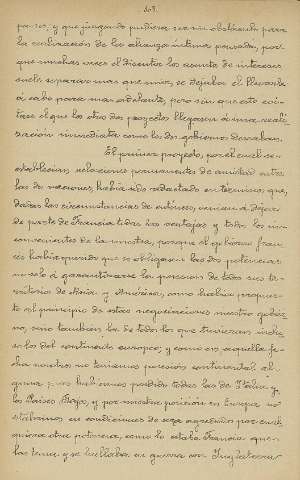 para ser, y que juzgando pudiera ser un obstáculo para
la realización de la alianza íntima pensada, por-
que muchas veces el discutir los asuntos de intereses
suele separar mas que unir, se dejaba el llevarlo
á cabo para mas adelante, pero sin que esto evi-
tase el que los otros dos proyectos llegasen á una reali-
zación inmediata como los dos gobiernos deseaban.
El primer proyecto, por el cual se
establecían relaciones permanentes de amistad entre
las dos naciones, había sido redactado en términos que,
dadas las circunstancias de entonces, venían á dejar
de parte de Francia todas las ventajas y todos los in-
convenientes de la nuestra, porque el gobierno fran-
cés había querido que se obligasen las dos potencias
no solo á garantizarse la posesión de todos sus te-
rritorios de Asia y América, como había propues-
to al principio de estas negociaciones nuestro gobier-
no, sino también la de todos los que tuvieran inclu-
so los del continente europeo; y como en aquella fe-
cha nosotros no teníamos posesión continental al-
guna, pues habíamos perdido todas las de Italia y
los Países Bajos, y por nuestra posición en Europa no
estábamos en condiciones de ser agredidos por cual-
quiera otra potencia, como lo estaba Francia que
las tenía y se hallaba en guerra con Inglaterra